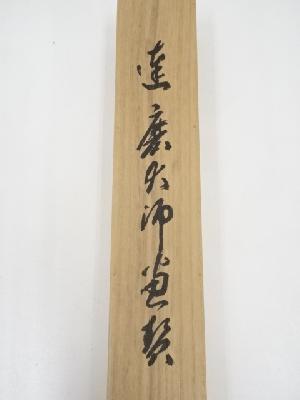 達磨大師画賛